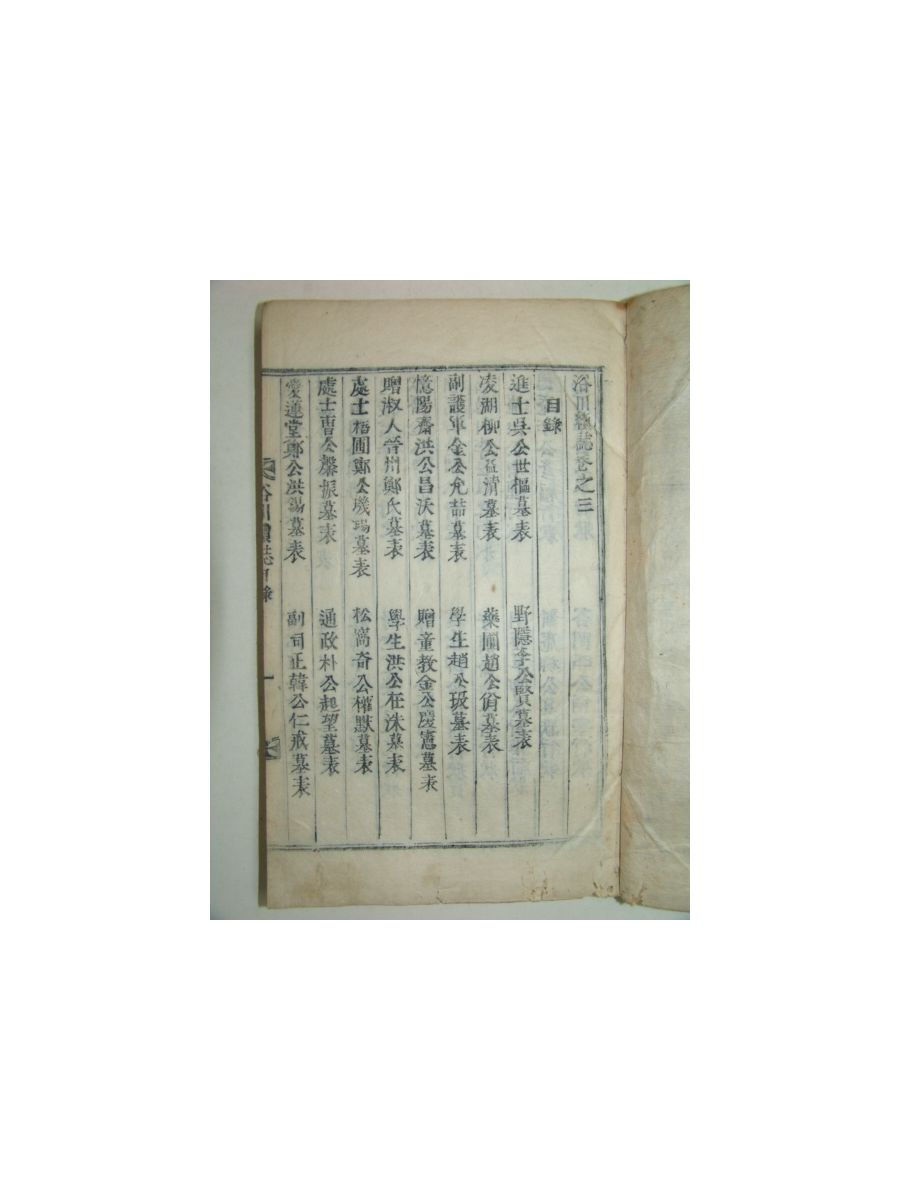 浴川續誌卷之三
目錄
進士吳公世樞墓表
野隱李公賢墓表
凌湖柳公益清墓表
藥圃趙公脩墓表
副護軍金公允喆墓表
學生趙公墓表
憶陽齋洪公昌沃墓表
贈童教金公慶憲墓表
贈淑人晉州鄭氏墓表
學生洪公在洙墓表
處士梧圃鄭公璣瑒墓表
松窩奇公權默墓表
處士曹公馨振墓表
通政朴公起望墓表
愛蓮堂鄭公洪錫墓表
副司正韓公仁戒墓表
浴川續誌目錄 一